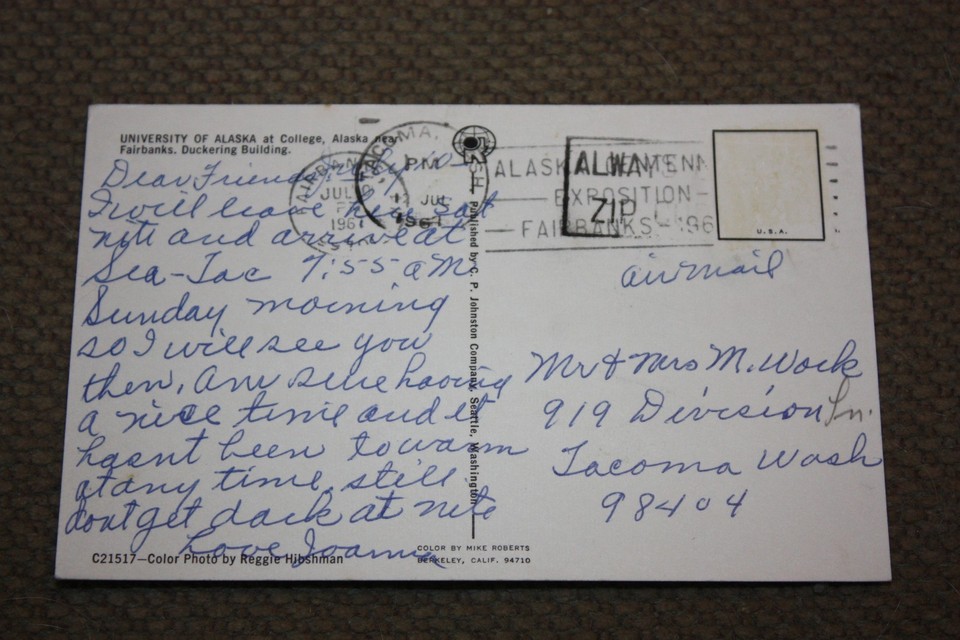 UNIVERSITY OF ALASKA at College, Alaska near
Fairbanks. Duckering Building.
Dear Friends
I will leave here Sat
nite and arrive at
Sea-Tac 7:55 a M
Sunday morning
so I will see you
then. Am sure having
a nice time and it
hasnt been to warm
at any time. still
dont get dark at nite
Love Joanna
C21517—Color Photo by Reggie Hibshman
Published by C. P. Johnston Company, Seattle, Washington
COLOR BY MIKE ROBERTS
BERKELEY, CALIF. 94710
TACOMA,
PM
12 JUL
1967
JUL
1967
ALASKA
EXPOSITION
FAIRBANKS - 196
ALWAYS
ZIP
U.S.A.
air mail
Mr & Mrs M. Wock
919 Division Ln.
Tacoma Wash
98404